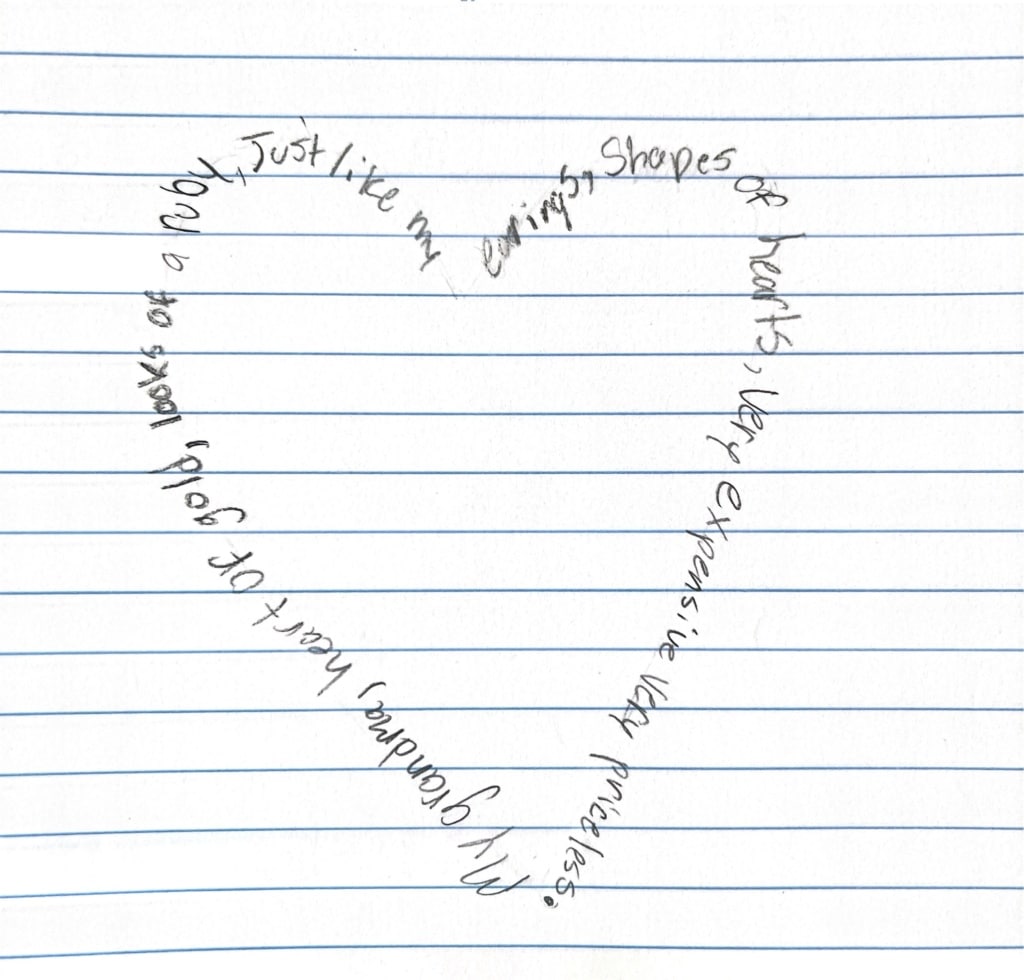 My grandma, heart of gold, looks of a ruby, Just like my earings, Shapes of hearts, very expensive very priceless.